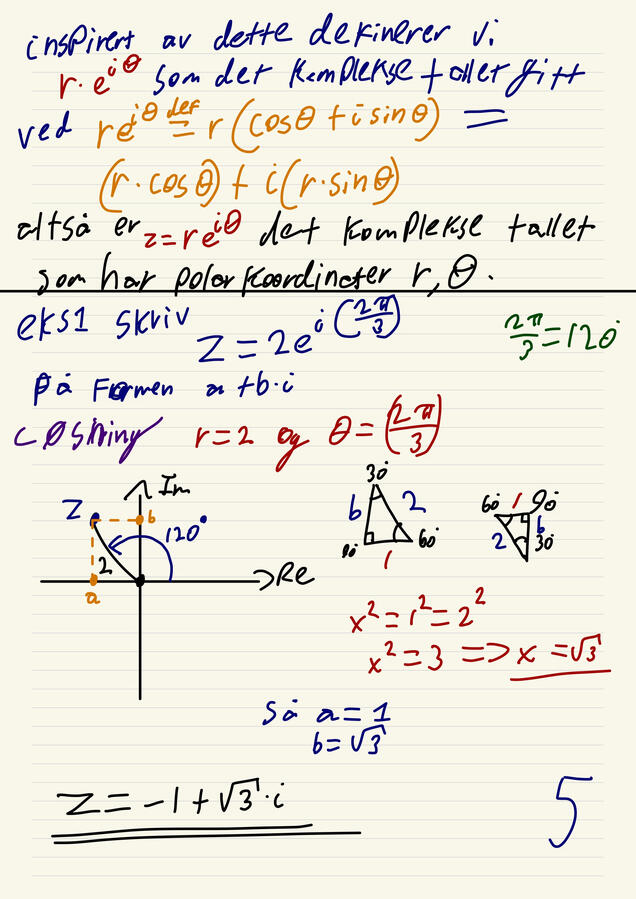 inspirert av dette dekinerer vi
r·e^{iθ} som det komplekse tallet gitt
ved re^{iθ} def= r(cosθ + i sinθ) =
(r·cosθ) + i(r·sinθ)
altså er z=re^{iθ} det komplekse tallet
som har polarkoordinater r, θ.
eks1 skriv z = 2e^{i(2π/3)}
2π/3 = 120°
på Formen a+b·i
LØSNING r=2 og θ=(2π/3)
Im
z
b
120°
2
a
Re
30°
b
2
90°
60°
1
60°
1
90°
2
b
30°
x² = 1² = 2²
x² = 3 => x = √3
Så a = 1
b = √3
z = -1 + √3·i
5